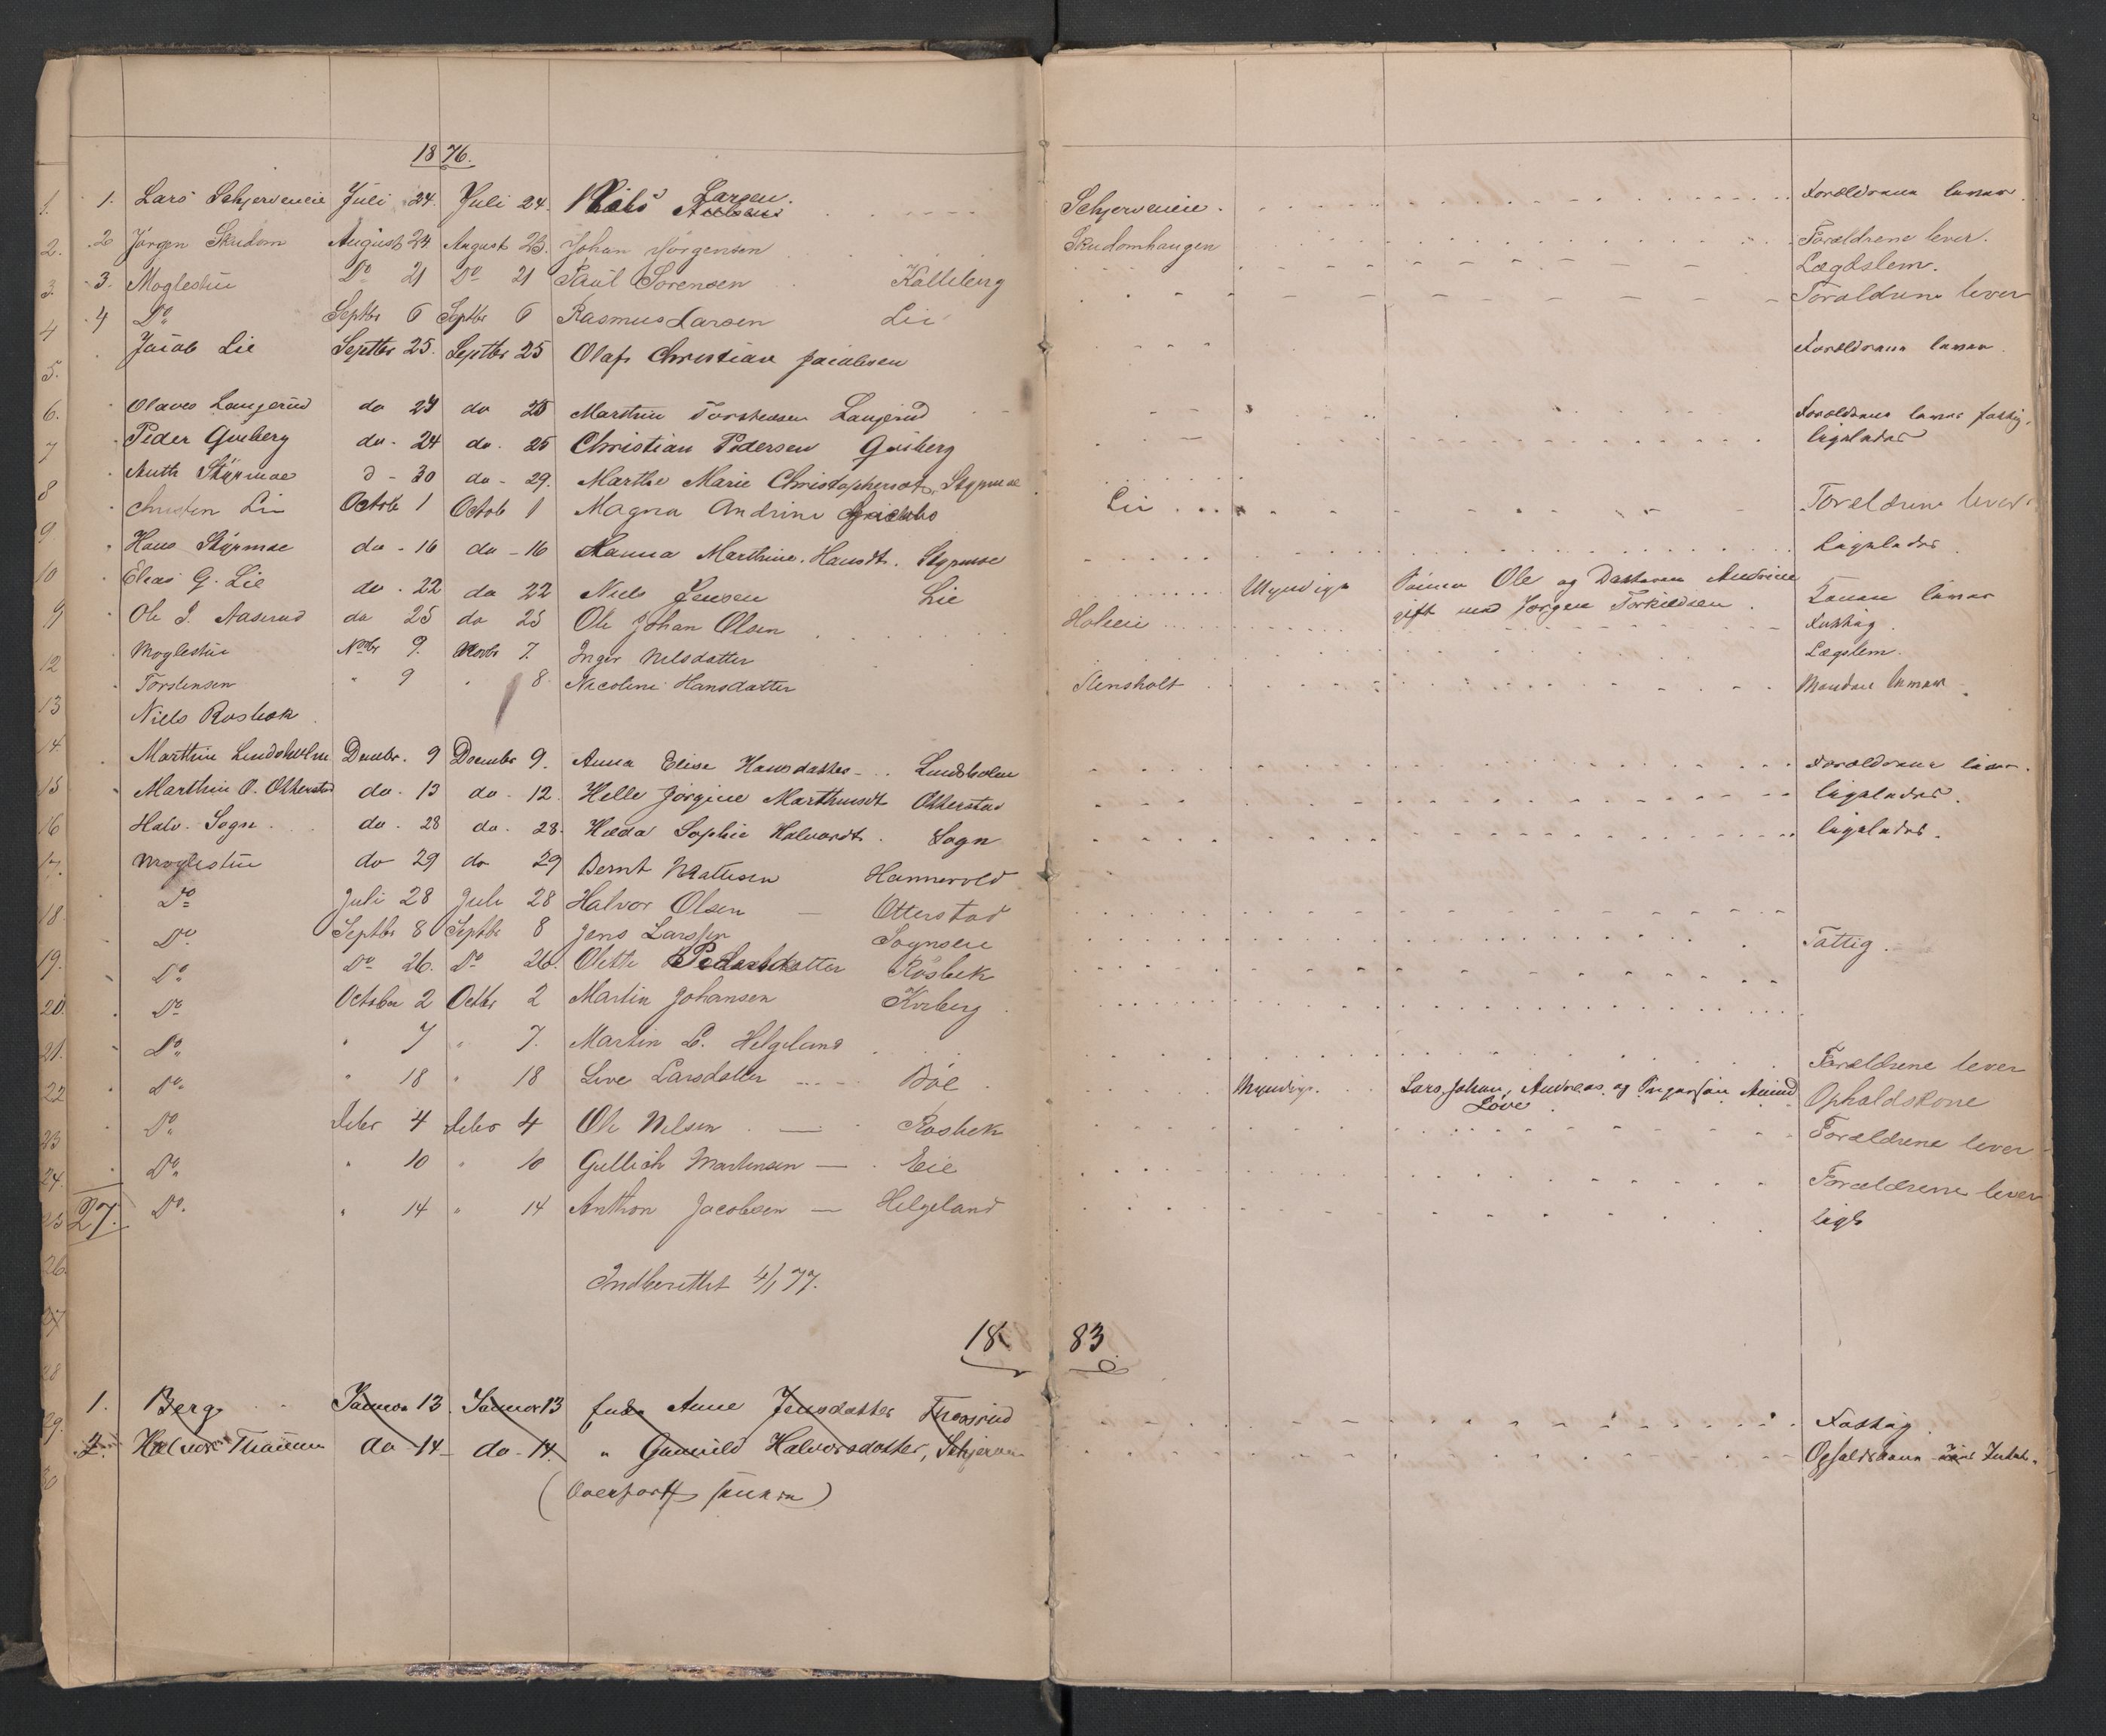 1876.
1. Lars Schjerveneie Juli 24. Juli 24. Niels Larsen. Schjerveneie. Forældrene lever.
2 Jörgen Skudom August 24 August 23. Johan Jörgensen Skudomhaugen Forældrene lever.
3. Moglestue Do 21 Do 21 Paul Sorensen Kalleberg Lægdslem.
4 Do Septbr 6 Septbr 6 Rasmus Larsen Lie Foraldrene lever
Jacob Lie Septbr 25. Septbr 25 Olaf Christian Jacobsen Forældrene lever.
Olaves Langerud do 27 do 28 Marthin Torstensen Langerud Forældrene lever fattig.
Peder Guiberg do. 24 do. 25 Christian Pedersen Guiberg ligeledes
Styrmoe d - 30 do - 29. Marthe Marie Christophersdt. Styrmoe
Christen Lie Octob 1 Octob 1 Magna Andrine Lie Foraldrene lever
Hans Styrmoe do - 16 do - 16 Hanna Marthine Hansdt. Styrmoe Ligeledes
Elias G. Lie do. 22 do 22 Niels Jensen Lie Myndige Sönnen Ole og Datteren Andrine gift med Jorgen Torkildsen. Konen lever
Ole J. Aaserud do 25 do 25 Ole Johan Olsen Holseie Fattig.
Moglestue Novbr 9. Novbr 7. Inger Nilsdatter Lægslem.
Torstensen " 9 " 8 Nicoline Hansdatter Stensholt Manden lever
Niels Rosbæk
Marthin Lindsholm Decmbr. 9 December 9. Anna Elise Hansdatter Lindsholm Forældrene lever.
Marthin O. Otterstad do. 13 do. 12. Helle Jörgine Marthinsdt Otterstad ligeledes.
Halv. Sogn. do. 28 do. 28. Hilda Sophie Halvordt. Sogn ligeledes.
Moglestue do 29 do 29 Bernt Mathisen Hannevold
Do Juli 28 Juli 28 Halvor Olsen Otterstad
Do Septbr 8 Septbr 8 Jens Larssen Sognseie Fattig.
Do Do 26. Do 26. Olette Pedersdatter Rosbek
Do October 2 Octbr 2 Martin Johansen Kviberg
Do " 7 " 7. Martin L. Helgeland Forældrene lever
Do " 18 " 18 Live Larsdatter Böe Myndige. Lars Johan, Andreas og Løve Opholdskone
Do Debr 4 Debr 4 Ole Nilsen Rosbek Forældrene lever
Do " 10 " 10 Gullich Martinsen Eie Forældrene lever
27. Do " 14 " 14 Anthon Jacobsen Helgeland lige
Indberettet 4/1 77.
1883.
1. Berg Januar 13. Januar 13 Enke Anne Jensdatter Fattig
2. Halvor Thaumm do - 14 - do - 14. " Gunnild Halvorsdatter, Schjerven
(Overfört senere)
1.
2.
3
4
5.
6.
7
8
9
10
9
12
13
14
15
16
17.
18
19.
20.
21.
22
23
24.
25
26.
27
28
29.
30